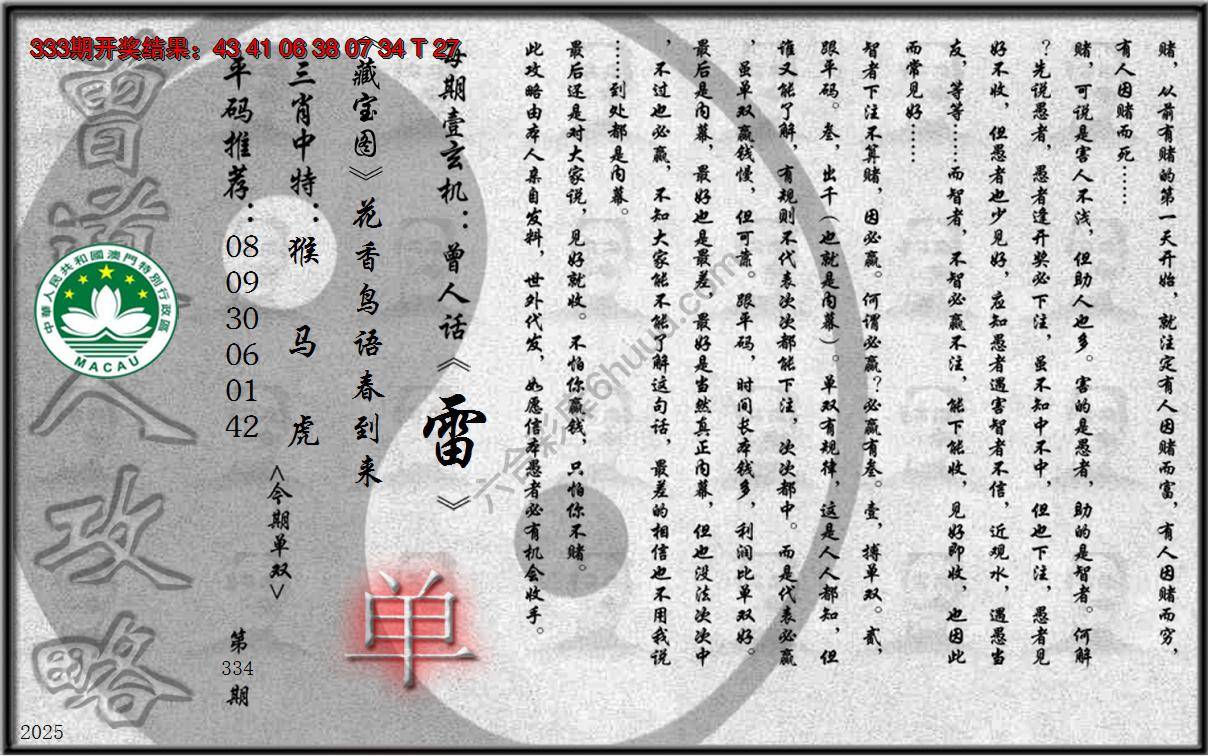 333期开奖结果：43 41 06 38 07 34 T 27
赌，从前有赌的第一天开始，就注定有人因赌而富，有人因赌而穷，
有人因赌而死……
赌，可说是害人不浅，但助人也多。害的是愚者，助的是智者。何解
？先说愚者，愚者逢开奖必下注，虽不知中不中，但也下注，愚者见
好不收，但愚者也少见好，应知愚者遇害智者不信，近观水，遇愚当
友，等等……而智者，不智必赢不注，能下能收，见好即收，也因此
而常见好……
智者下注不算赌，因必赢。何谓必赢？必赢有叁。壹，搏单双。贰，
跟平码。叁，出千（也就是内幕）。单双有规律，这是人人都知，但
谁又能了解，有规则不代表次次都能下注，次次都中。而是代表必赢
，虽单双赢钱慢，但可靠。跟平码，时间长本钱多，利润比单双好。
最后是内幕，最好也是最差，最好是当然真正内幕，但也没法次次中
，不过也必赢，不知大家能不能了解这句话，最差的相信也不用我说
……到处都是内幕。
最后还是对大家说，见好就收。不怕你赢钱，只怕你不赌。
此攻略由本人亲自发料，世外代发，如愿信本愚者必有机会收手。
每期壹玄机：曾人话《雷》
《藏宝图》花香鸟语春到来
三肖中特：猴 马 虎
<今期单双>
单
平码推荐：08 09 30 06 01 42
第334期
曾道人攻略
中華人民共和國澳門特別行政區
MACAU
2025